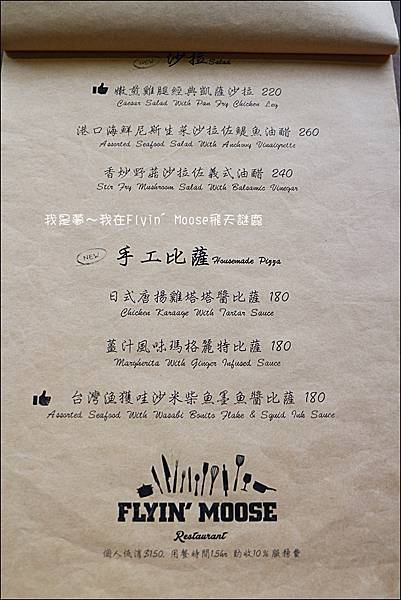 NEW 沙拉 Salad
嫩煎雞腿經典凱薩沙拉 220
Caesar Salad With Pan Fry Chicken Leg
港口海鮮尼斯生菜沙拉佐鯷魚油醋 260
Assorted Seafood Salad With Anchovy Vinaigrette
香炒野菇沙拉佐義式油醋 240
Stir Fry Mushroom Salad With Balsamic Vinegar
我是夢～我在Flyin' Moose飛天謎鹿
NEW 手工比薩 Housemade Pizza
日式唐揚雞塔塔醬比薩 180
Chicken Karaage With Tartar Sauce
薑汁風味瑪格麗特比薩 180
Margherita With Ginger Infused Sauce
台灣漁獲哇沙米柴魚墨魚醬比薩 180
Assorted Seafood With Wasabi Bonito Flake & Squid Ink Sauce
FLYIN' MOOSE
Restaurant
個人低消$150. 用餐時間1.5hr 酌收10%服務費